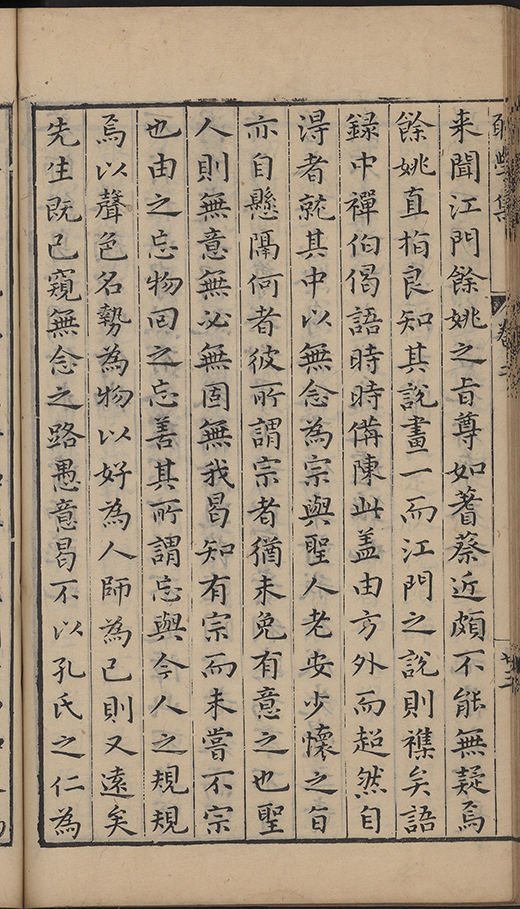 集
卷二
廿二
来聞江門餘姚之旨尊如蓍蔡近頗不能無疑焉
餘姚直指良知其說畫一而江門之說則襍矣語
録中禪伯偈語時時偹陳此盖由方外而超然自
淂者就其中以無念為宗與聖人老安少懷之旨
亦自懸隔何者彼所謂宗者猶未免有意之也聖
人則無意無必無固無我曷知有宗而未嘗不宗
也由之忘物回之忘善其所謂忘與今人之規規
焉以聲色名勢為物以好為人師為已則又遠矣
先生既已窺無念之路愚意曷不以孔氏之仁為